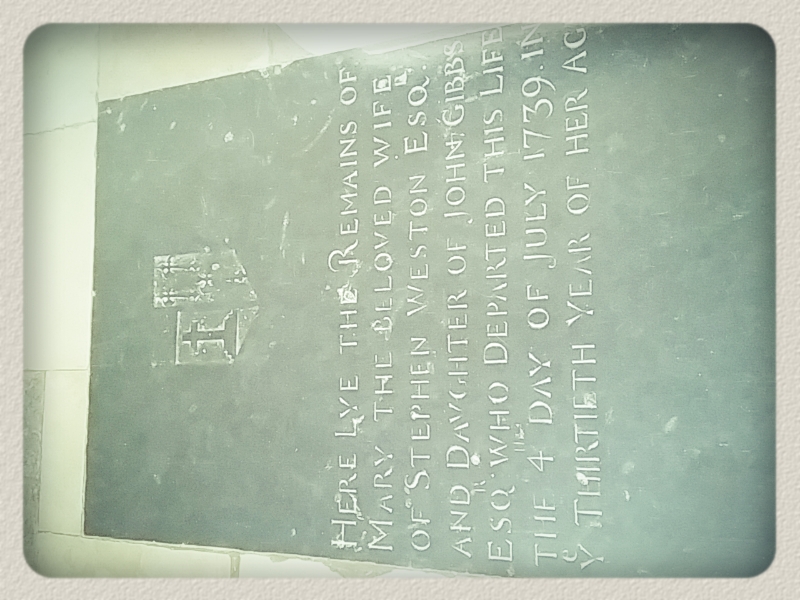 HERE LYE THE REMAINS OF
MARY THE BELOVED WIFE
OF STEPHEN WESTON ESQ.
AND DAVGHTER OF JOHN GIBBS
ESQ WHO DEPARTED THIS LIFE
THE 4 DAY OF JULY 1739. IN
Yᵉ THIRTIETH YEAR OF HER AG